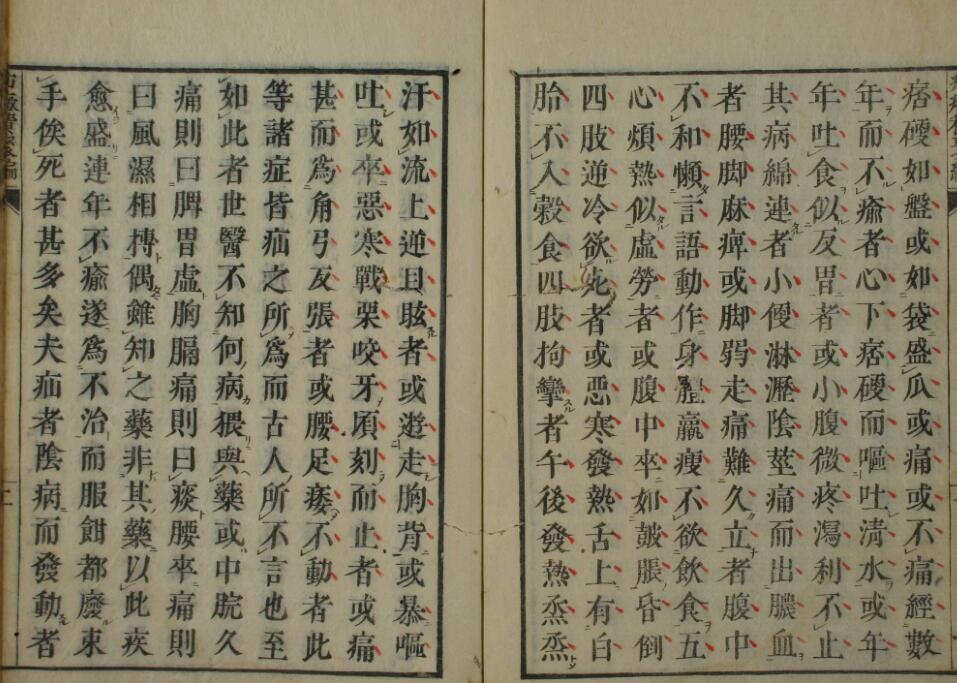 痞硬如盤或如袋盛瓜或痛或不痛經數
年而不瘉者心下痞硬而嘔吐淸水或年
年吐食似反胃者或小腹微疼瀉利不止
其病綿連者小便淋瀝陰莖痛而出膿血
者腰脚麻痺或脚弱走痛難久立者腹中
不和懶言語動作身體羸瘦不欲飮食五
心煩熱似虛勞者或腹中卒如皷脹昏倒
四肢逆冷欲死者或惡寒發熱舌上有白
胎不入穀食四肢拘攣者午後發熱烝烝
汗如流上逆目眩者或遊走胸背或暴嘔
吐或卒惡寒戰栗咬牙頃刻而止者或痛
甚而爲角弓反張者或腰足痿不動者此
等諸症皆疝之所爲而古人所不言也至
如此者世醫不知何病猥與藥或中脘久
痛則曰脾胃虛胸膈痛則曰痰腰卒痛則
曰風濕相摶偶雖知之藥非其藥以此疾
愈盛連年不瘉遂爲不治而服餌都廢束
手俟死者甚多矣夫疝者陰病而發動者